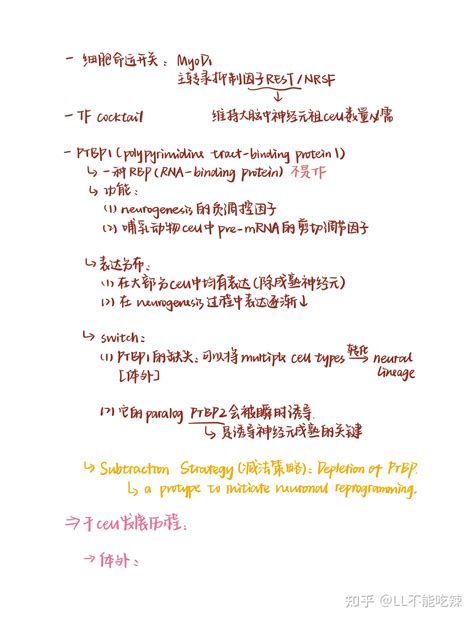 - 细胞命运开关：MyoD1
主转录抑制因子REST/NRSF
- TF cocktail
维持大脑中神经元祖cell数量必需
- PTBP1 (polypyrimidine tract-binding protein 1)
↳ 一种RBP (RNA-binding protein) 不是TF
↳ 功能：
(1) neurogenesis的负调控因子
(2) 哺乳动物cell中pre-mRNA的剪切调节因子
↳ 表达分布：
(1) 在大部分cell中均有表达 (除成熟神经元)
(2) 在neurogenesis过程中表达逐渐↓
↳ switch：
(1) PTBP1的缺失：可以将multiple cell types 转化→ neural lineage
[体外]
(2) 它的paralog PTBP2会被瞬时诱导
↳ 是诱导神经元成熟的关键
↳ Subtraction Strategy (减法策略)：Depletion of PTBP.
↳ a protype to initiate neuronal reprogramming.
⇒ 干cell发展历程：
→ 体外：
知乎 @LL不能吃辣